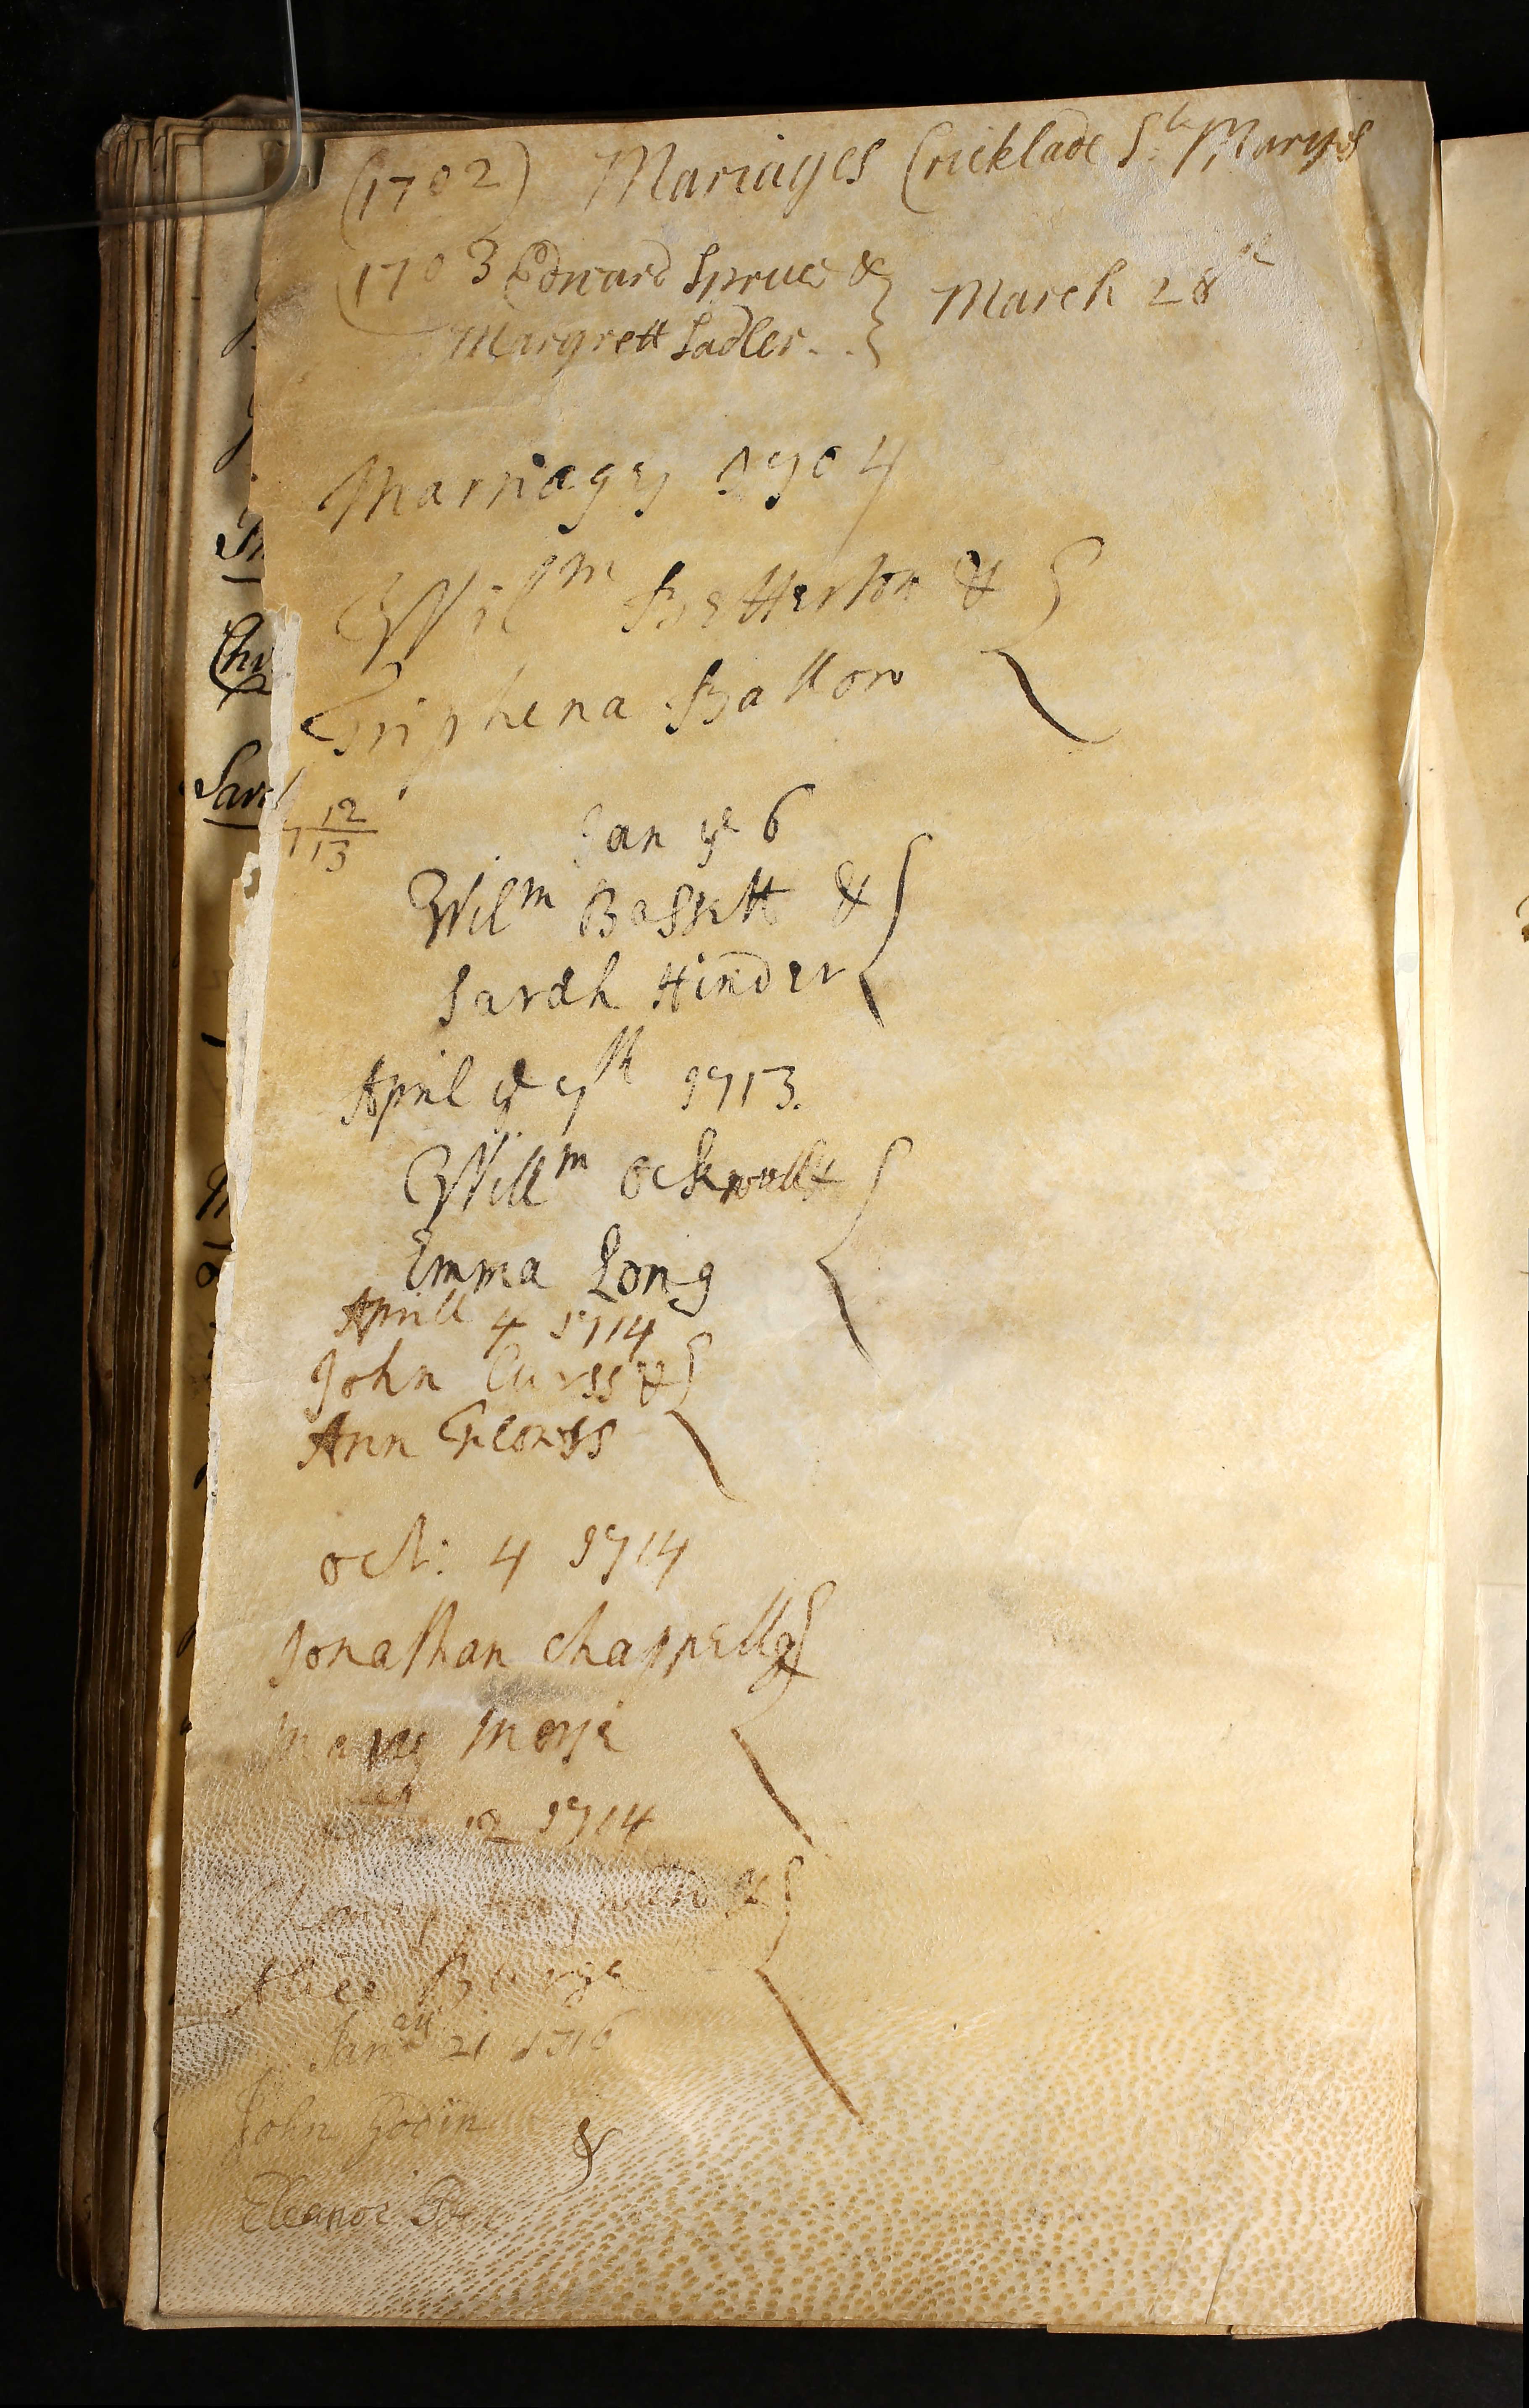 (1702) Mariages Cricklade St. Maryes
(1703 Edward Spruce & March 28th
Margrett Sadler
Marriages 1704
Wilm Betterton &
Triphena Batton
12
13
Jan ye 6
Wilm Bassett &
Sarah Hinder
April ye 7th 1713.
Willm Ockwell &
Emma Long
Aprill 4 1714
John Curss &
Ann
Oct: 4 1714
Jonathan Chappell &
Mary Morse
12 1714
&
Alice
Janry 21 1716
John Godin &
Eleanor